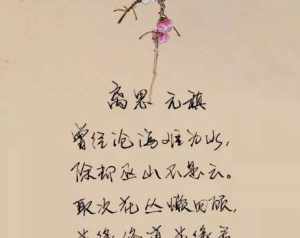 离思 元稹
曾经沧海难为水，
除却巫山不是云。
取次花丛懒回顾，
半缘修道半缘君